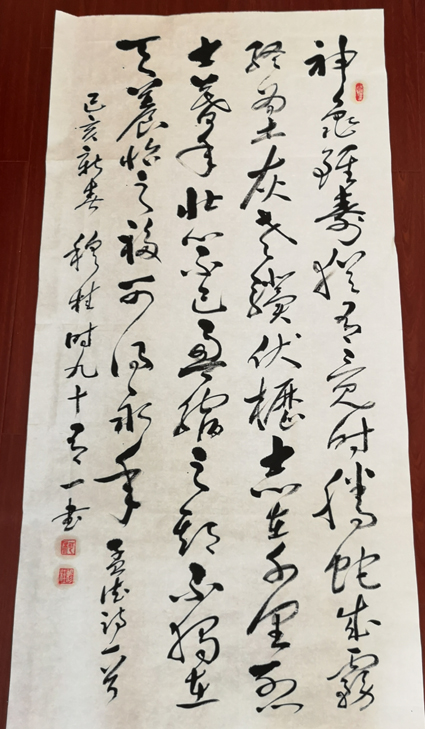 神龜雖壽猶有竟时騰蛇成霧
終為土灰老驥伏櫪志在千里烈
士暮年壯心不已盈縮之期不獨在
天養怡之福可得永年 孟德诗一首
己亥新春 穆桂时九十有一书